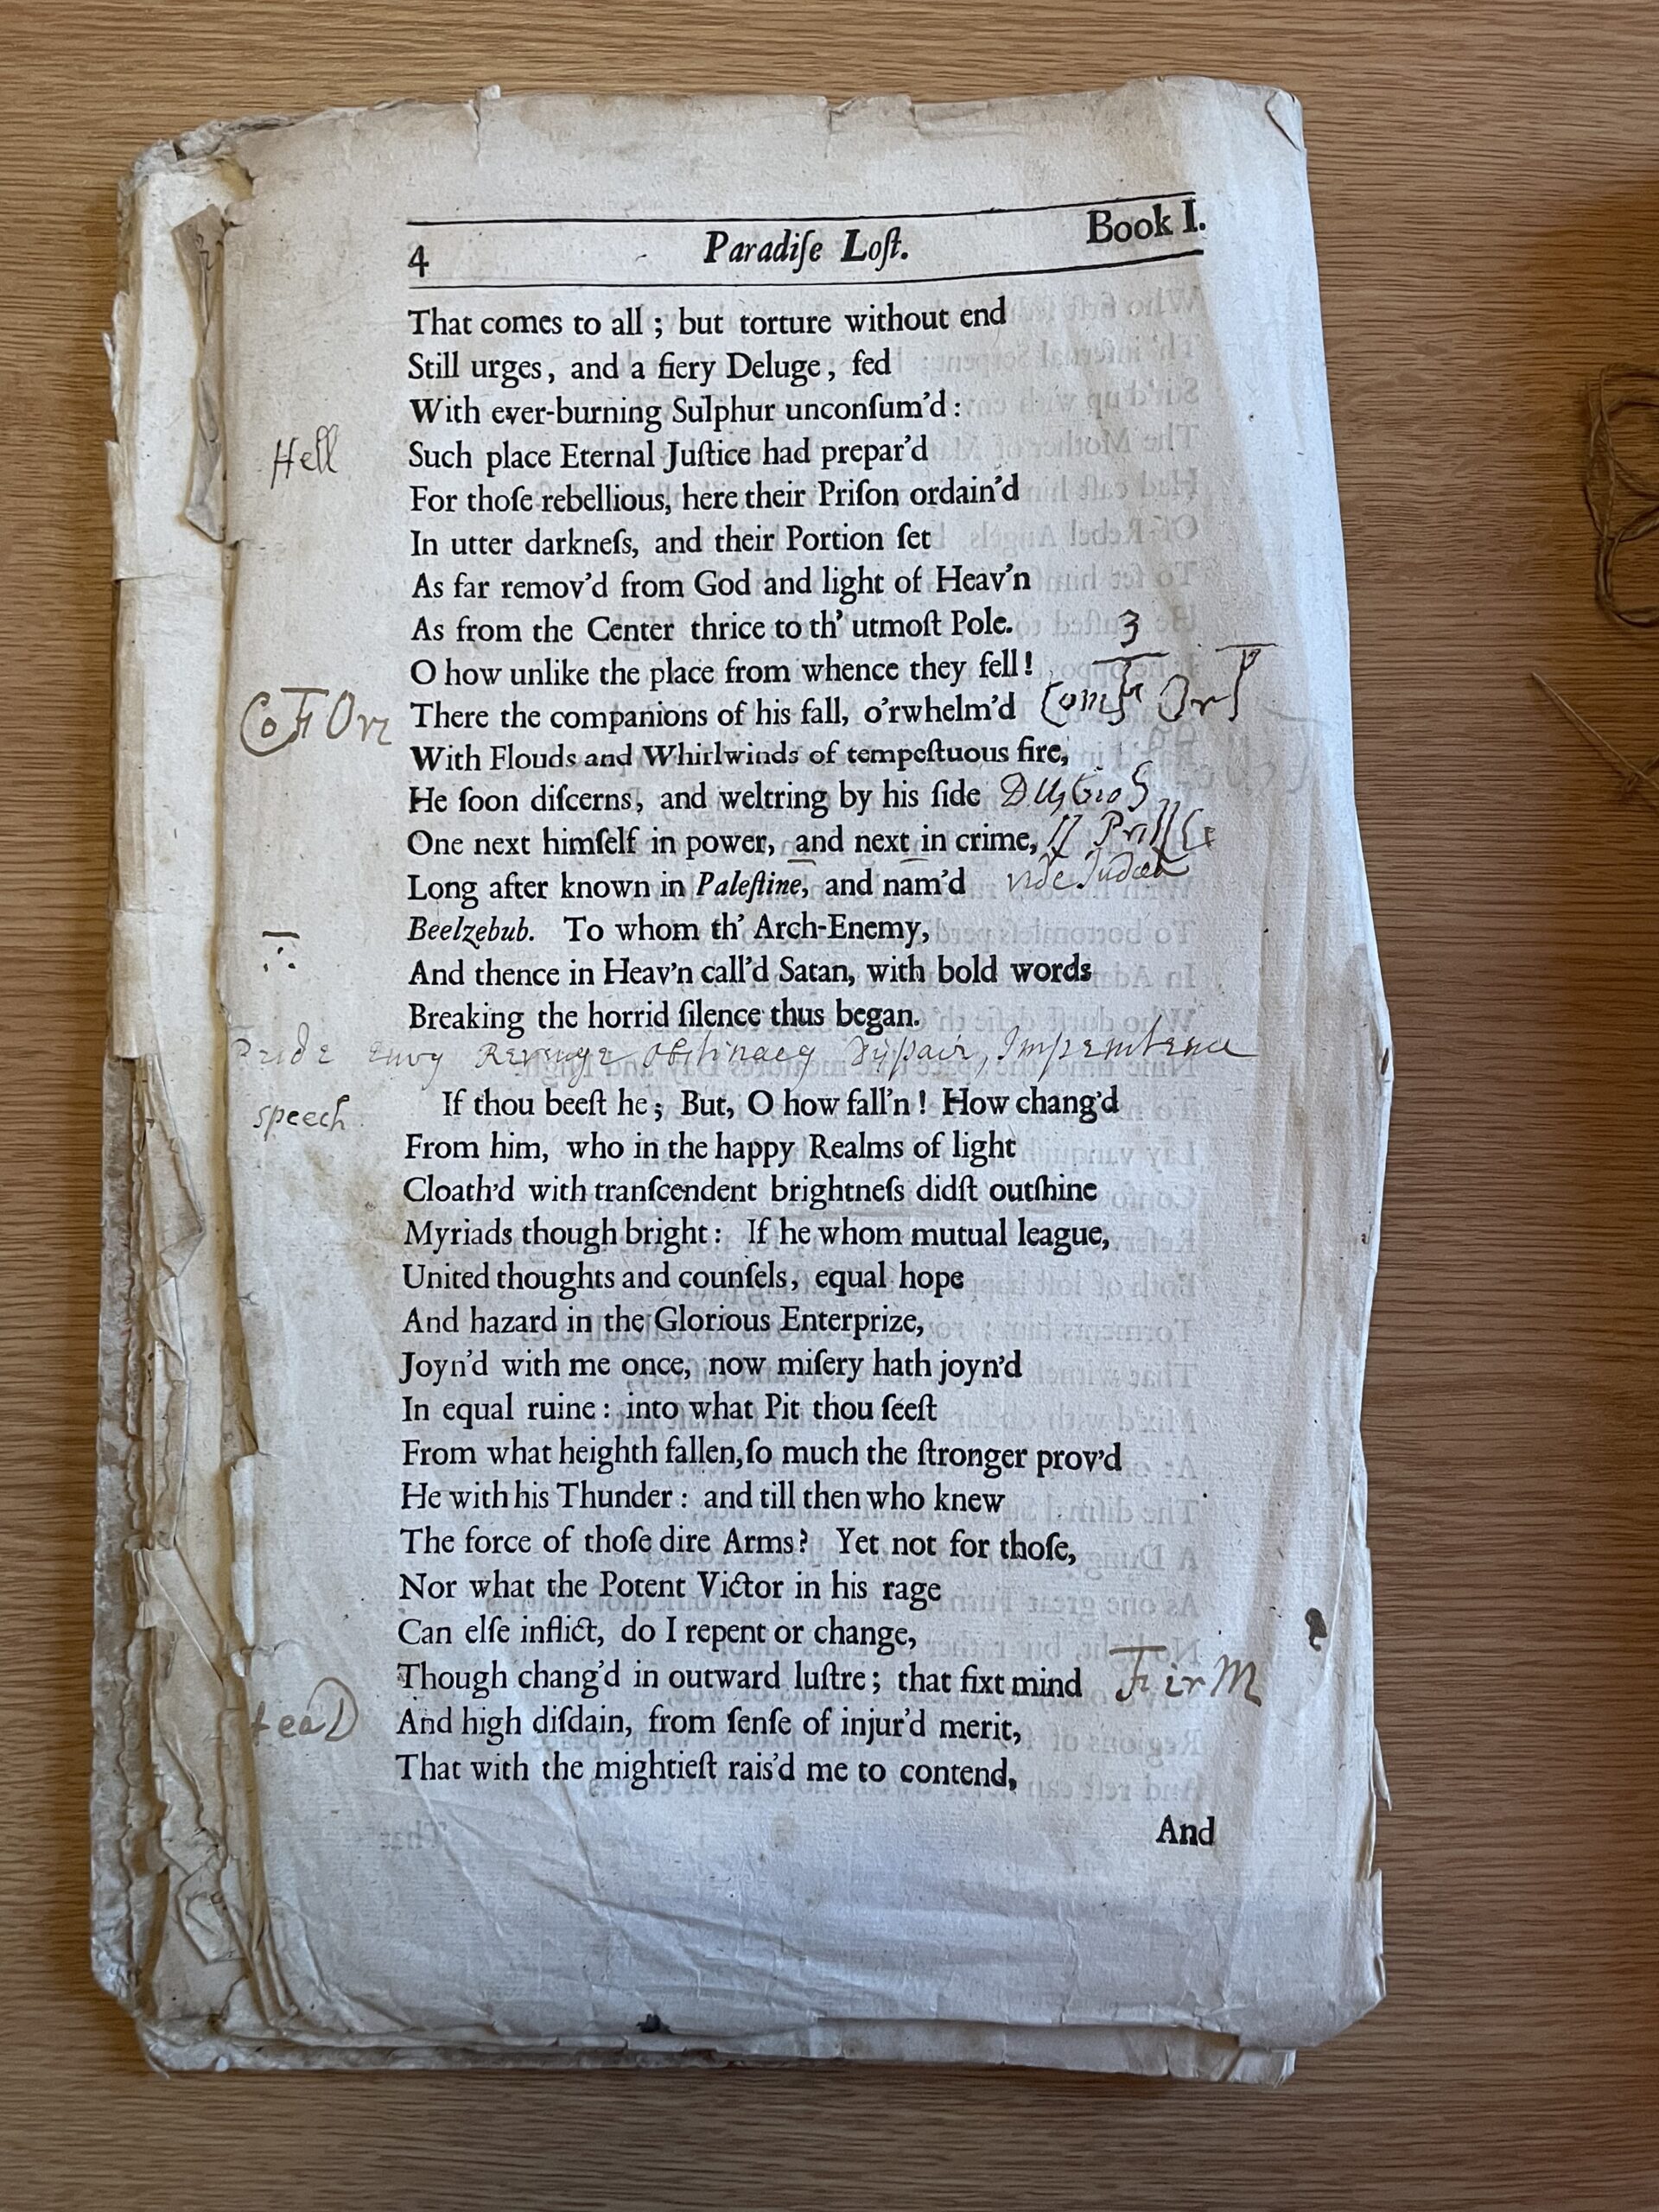 4 Paradiſe Loſt. Book I.
That comes to all ; but torture without end
Still urges, and a fiery Deluge, fed
With ever-burning Sulphur unconſum'd :
Hell Such place Eternal Juſtice had prepar'd
For thoſe rebellious, here their Priſon ordain'd
In utter darkneſs, and their Portion ſet
As far remov'd from God and light of Heav'n
As from the Center thrice to th' utmoſt Pole. 3
O how unlike the place from whence they fell !
There the companions of his fall, o'rwhelm'd
With Flouds and Whirlwinds of tempeſtuous fire,
He ſoon diſcerns, and weltring by his ſide
One next himſelf in power, and next in crime,
Long after known in Paleſtine, and nam'd vide
Beelzebub. To whom th' Arch-Enemy,
And thence in Heav'n call'd Satan, with bold words
Breaking the horrid ſilence thus began.
Pride Envy Revenge Obstinacy Dispair, Impenitence
speech If thou beeſt he ; But, O how fall'n ! How chang'd
From him, who in the happy Realms of light
Cloath'd with tranſcendent brightneſs didſt outſhine
Myriads though bright : If he whom mutual league,
United thoughts and counſels, equal hope
And hazard in the Glorious Enterprize,
Joyn'd with me once, now miſery hath joyn'd
In equal ruine : into what Pit thou ſeeſt
From what heighth fallen, ſo much the ſtronger prov'd
He with his Thunder : and till then who knew
The force of thoſe dire Arms ? Yet not for thoſe,
Nor what the Potent Victor in his rage
Can elſe inflict, do I repent or change,
Though chang'd in outward luſtre ; that fixt mind FirM
And high diſdain, from ſenſe of injur'd merit,
That with the mightieſt rais'd me to contend,
And